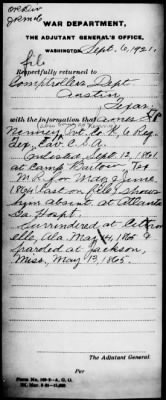 WAR DEPARTMENT,
THE ADJUTANT GENERAL'S OFFICE,
WASHINGTON, Sept. 6, 1921.
Respectfully returned to
Comptrollers Dept
Austin
Texas
with the information that James
Pvt. Co. K 6 Reg
Tex. Cav. C.S.A.
enlisted Sept. 12, 1861
at Camp Bart Tex
M.R. for May & June
1864 last on file, shows
him absent, at Atlanta
Ga Hospt.
Surrendered at Citron-
elle, Ala. May 4, 1865 &
paroled at Jackson,
Miss. May 13, 1865.
The Adjutant General.
Per